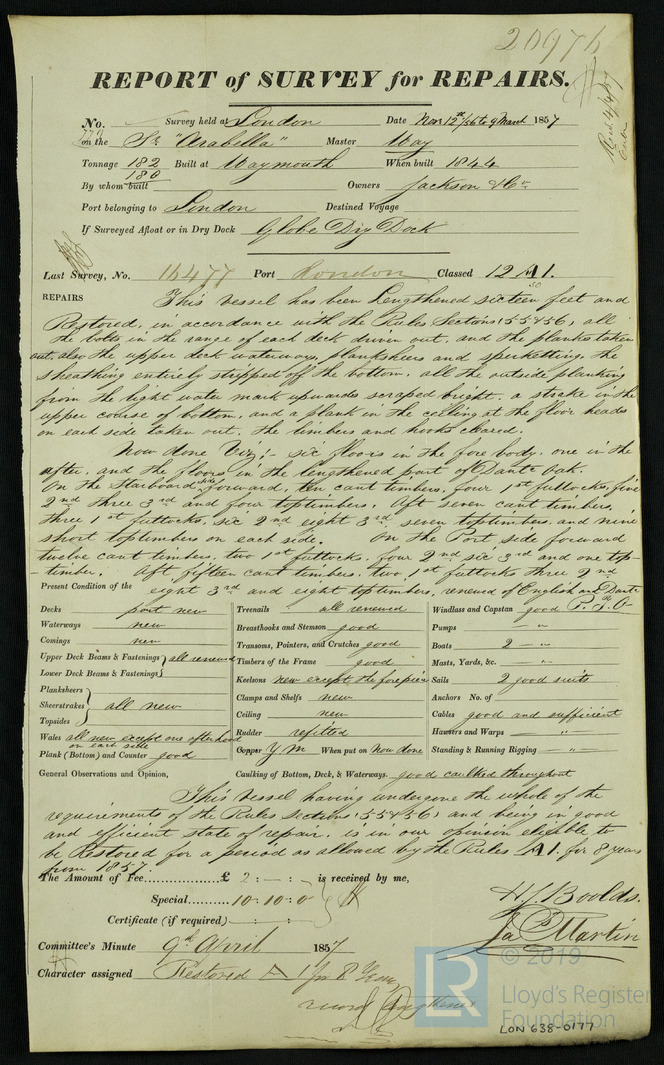 20976
REPORT of SURVEY for REPAIRS.
Recd 4/4/57
No. Survey held at London Date Nov 12th/56 to 9 March 1857
on the Sr "Arabella" Master Way
Tonnage 182 Built at Waymouth When built 1844
180
By whom built Owners Jackson & Co
Port belonging to London Destined Voyage
If Surveyed Afloat or in Dry Dock Globe Dry Dock
Last Survey, No. 16477 Port London Classed 12 A1.
50
REPAIRS This vessel has been Lengthened sixteen feet and
Restored, in accordance with the Rules Sections 55 & 56, all
the bolts in the range of each deck driven out, and the planks taken
out, also the upper deck waterways, planksheers and spirketting, the
sheathing entirely stripped off the bottom, all the outside planking
from the light water mark upwards scraped bright, a strake in the
upper course of bottom, and a plank in the ceiling at the floor heads
on each side taken out, the limbers and hooks cleared.
Now done Viz;- six floors in the fore body, one in the
after, and the floors in the lengthened part of Dantc Oak.
On the Starboard side forward, ten cant timbers, four 1st futtocks, five
2nd three 3rd and four toptimbers. Aft seven cant timbers,
three 1st futtocks, six 2nd eight 3rd seven toptimbers, and nine
short toptimbers on each side. On the Port side forward
twelve cant timbers, two 1st futtocks, four 2nd six 3rd and one top-
-timber. Aft fifteen cant timbers, two 1st futtocks three 2nd
eight 3rd and eight toptimbers, renewed of English and Dantc
P.T.O
Present Condition of the
Decks part new
Waterways new
Comings new
Upper Deck Beams & Fastenings } all renewed
Lower Deck Beams & Fastenings }
Planksheers }
Sheerstrakes } all new
Topsides }
Wales all new except one afterhood
on each side
Plank (Bottom) and Counter good
Treenails all renewed
Breasthooks and Stemson good
Transoms, Pointers, and Crutches good
Timbers of the Frame good
Keelsons new except the forepiece
Clamps and Shelfs new
Ceiling new
Rudder refitted
Copper Y M When put on Now done
Windlass and Capstan good
Pumps — " —
Boats 2 — " —
Masts, Yards, &c. — " —
Sails 2 good suits
Anchors No. of
Cables good and sufficient
Hawsers and Warps — " —
Standing & Running Rigging — " —
General Observations and Opinion, Caulking of Bottom, Deck, & Waterways. good caulked throughout
This vessel having undergone the whole of the
requirements of the Rules Sections 55 & 56, and being in good
and efficient state of repair, is in our opinion eligible to
be Restored for a period as allowed by the Rules A1. for 8 years
from 1857.
The Amount of Fee............... £ 2 : — : — is received by me,
Special............ 10 : 10 : 0
Certificate (if required)
H J Boolds.
Ja Martin
Committee's Minute 9th April 1857
Character assigned Restored A 1 for 8 Years
record Lengthened
LR
© 2019
Lloyd's Register
Foundation
LON 638-0177